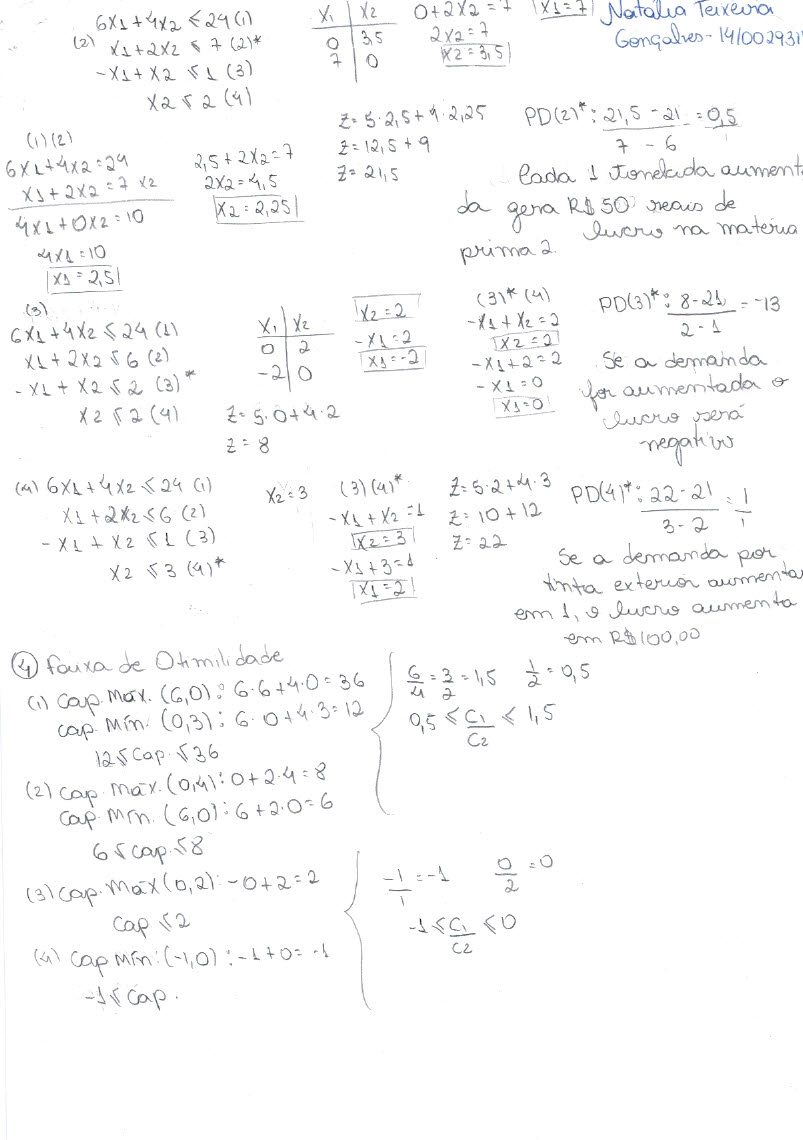 6x1+4x2 ≤ 24 (1)
(2) x1+2x2 ≤ 7 (2)*
-x1+x2 ≤ 1 (3)
x2 ≤ 2 (4)
x1 | x2
0 | 3,5
7 | 0
0+2x2=7
2x2=7
x2=3,5
x1=7
Natália Teixeira
Gonçalves - 14/002931
(1)(2)
6x1+4x2=24
x1+2x2=7 x2
4x1+0x2=10
4x1=10
x1=2,5
2,5+2x2=7
2x2=4,5
x2=2,25
Z=5·2,5+4·2,25
Z=12,5+9
Z=21,5
PD(2)*: 21,5-21 = 0,5
7-6 1
Cada 1 tonelada aument
da gera R$50 reais de
lucro na matéria
prima 2.
(3)
6x1+4x2 ≤ 24 (1)
x1+2x2 ≤ 6 (2)
-x1+x2 ≤ 2 (3)*
x2 ≤ 2 (4)
x1 | x2
0 | 2
-2 | 0
x2=2
-x1=2
x1=-2
Z=5·0+4·2
Z=8
(3)*(4)
-x1+x2=2
x2=2
-x1+2=2
-x1=0
x1=0
PD(3)*: 8-21 = -13
2-1
Se a demanda
for aumentada o
lucro será
negativo
(4) 6x1+4x2 ≤ 24 (1)
x1+2x2 ≤ 6 (2)
-x1+x2 ≤ 1 (3)
x2 ≤ 3 (4)*
x2=3
(3)(4)*
-x1+x2=1
x2=3
-x1+3=1
x1=2
Z=5·2+4·3
Z=10+12
Z=22
PD(4)*: 22-21 = 1
3-2 1
Se a demanda por
tinta exterior aumenta
em 1, o lucro aumenta
em R$100,00
4 Faixa de Otimilidade
(1) Cap. Máx. (6,0): 6·6+4·0=36
Cap. Mín. (0,3): 6·0+4·3=12
12 ≤ Cap. ≤ 36
(2) Cap. Máx. (0,4): 0+2·4=8
Cap. Mín. (6,0): 6+2·0=6
6 ≤ Cap. ≤ 8
6/4 = 3/2 = 1,5 1/2 = 0,5
0,5 ≤ C1/C2 ≤ 1,5
(3) Cap. Máx (0,2): -0+2=2
Cap ≤ 2
(4) Cap Mín: (-1,0): -1+0=-1
-1 ≤ Cap.
-1/1 = -1 0/2 = 0
-1 ≤ C1/C2 ≤ 0